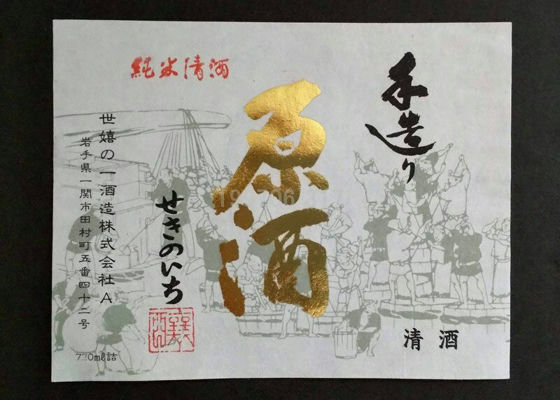 純米清酒
手造り
原酒
せきのいち
世嬉の一酒造株式会社A
岩手県一関市田村町五番四十二号
清酒
720ml詰